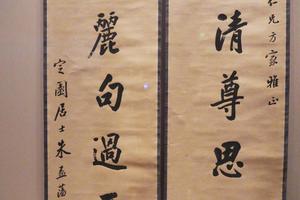 仁兄方家雅正
清尊思
麗句過
定園居士朱孟